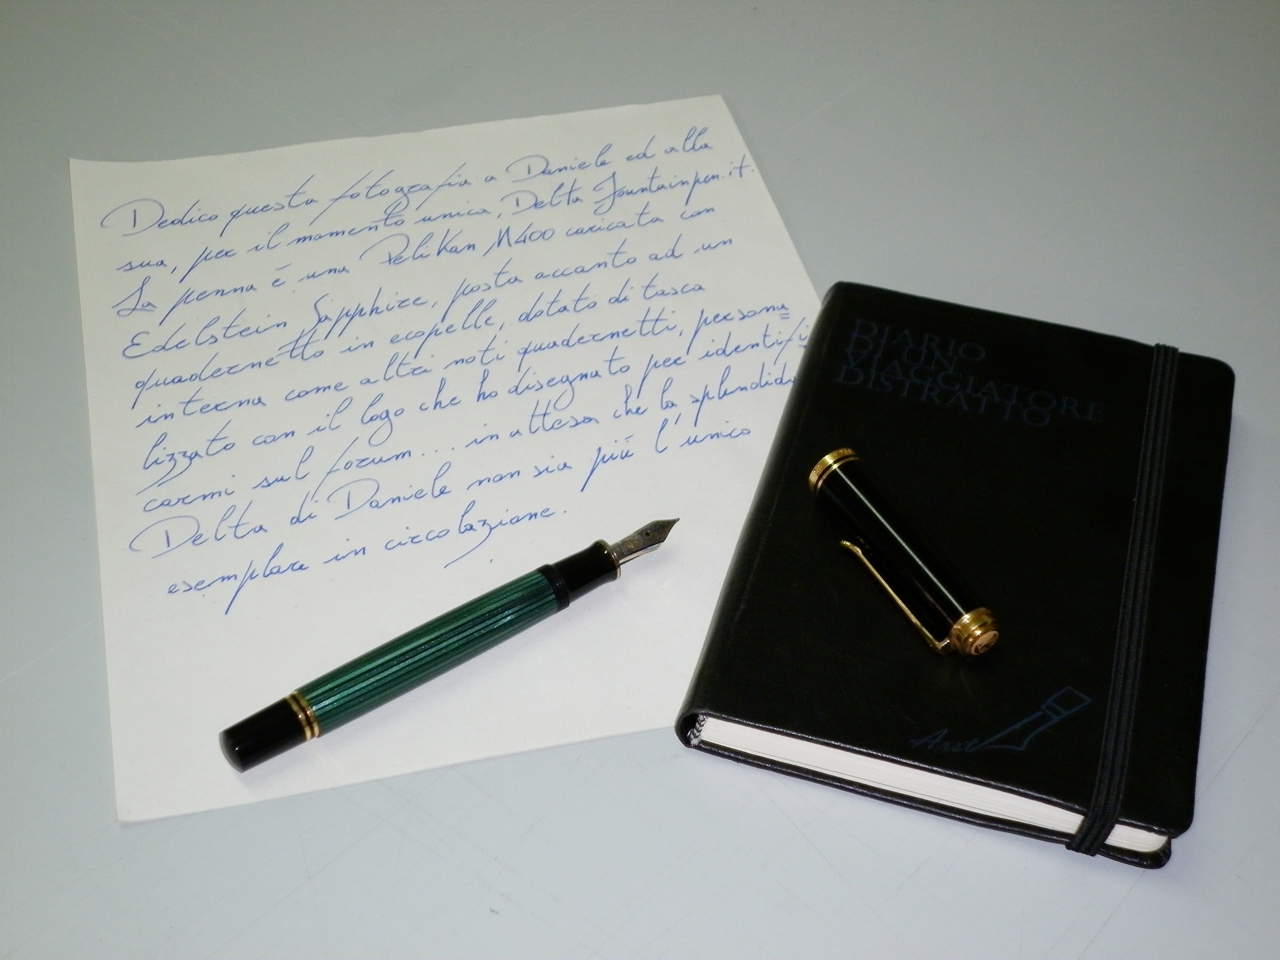 Dedico questa fotografia a Daniele ed alla
sua, per il momento unica, Delta Fountainpen.it.
La penna è una Pelikan M400 caricata con
Edelstein Sapphire, posta accanto ad un
quadernetto in ecopelle, dotato di tasca
interna come altri noti quadernetti, persona=
lizzato con il logo che ho disegnato per identifi
carmi sul forum... in attesa che la splendida
Delta di Daniele non sia più l'unico
esemplare in circolazione.
DIARIO
DI UN
VIAGGIATORE
DISTRATTO